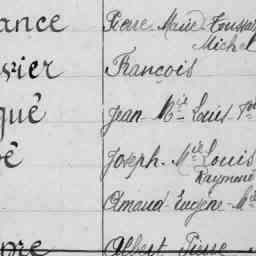 ance Pierre Marie Toussa
Michel
vier François
qué Jean-Mie Louis
é Joseph Mie Louis
Raymond
Amand Eugène
Albert Pierre